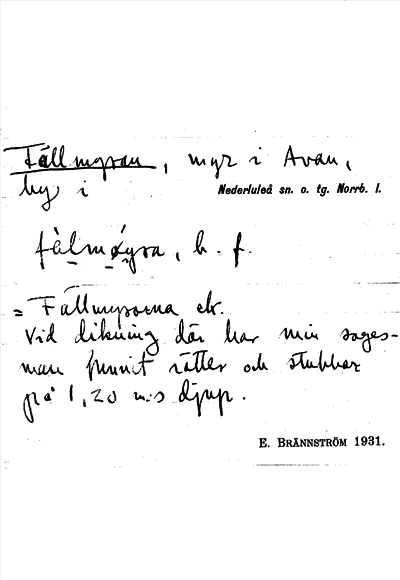 Fällmyran, myr i Avan,
by i Nederluleå sn. o. tg. Norrb. l.
fälmøyra, b. f.
= Fällmyrorna ek.
Vid dikning där har min sages-
man funnit rötter och stubbar
på 1,20 m:s djup.
E. BRÄNNSTRÖM 1931.